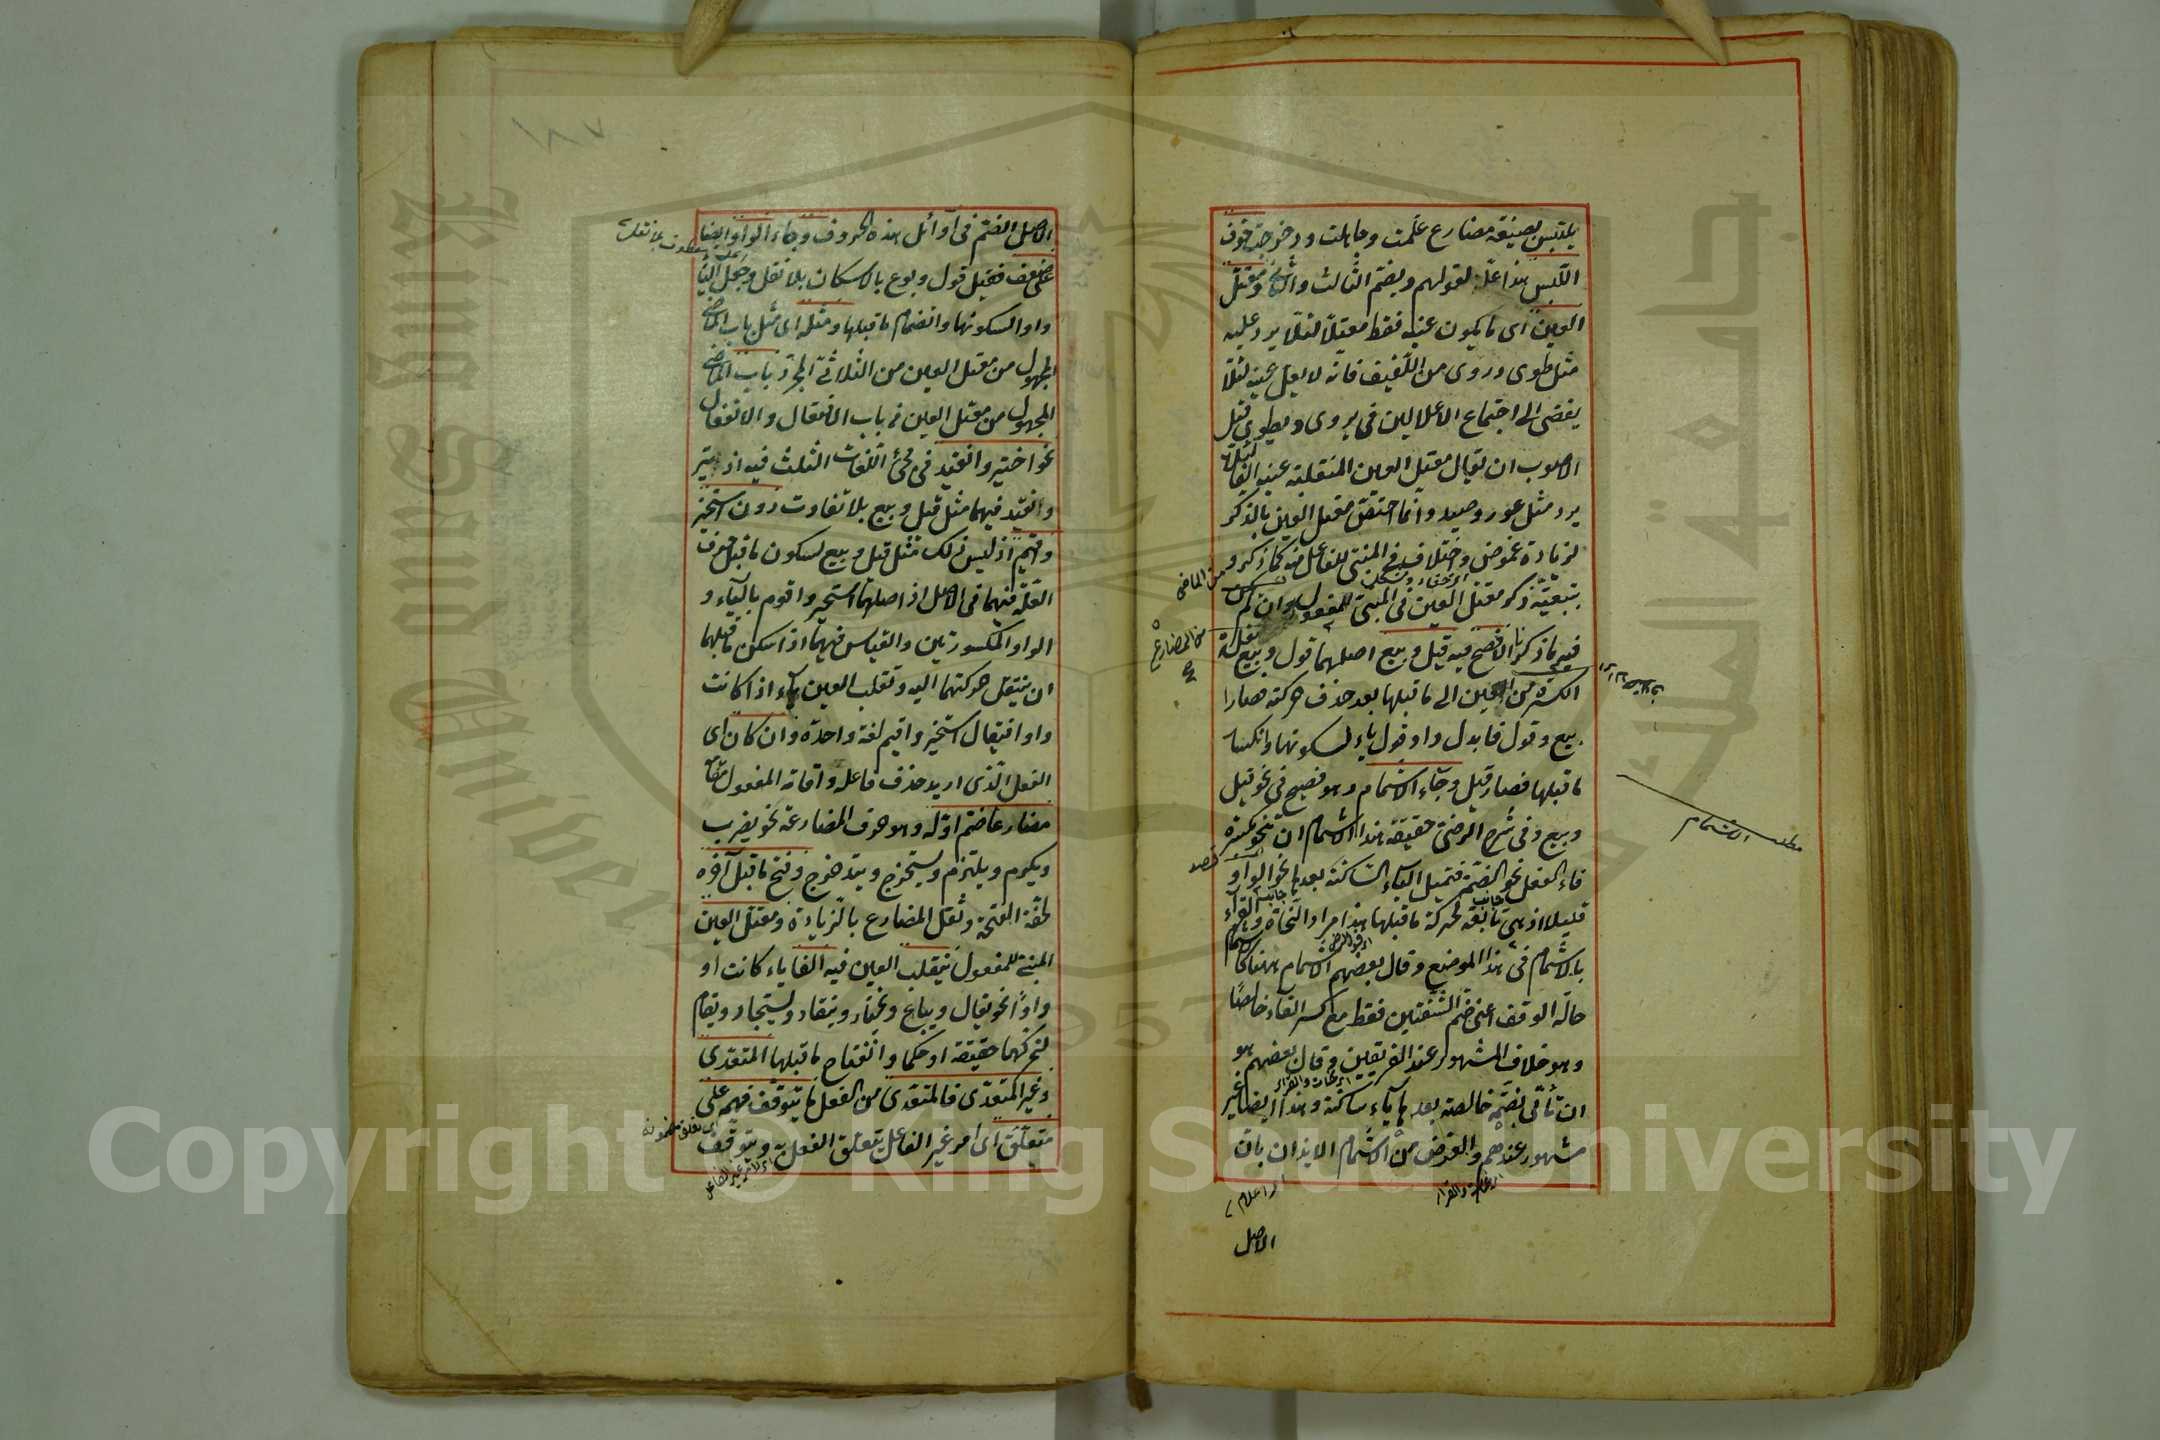 يلتبس بصيغة مضارع علمت وجاهلت ودحرجت خوف
اللبس هذا علة لقولهم ويضم الثالث والثاني ومعتل
العين اى ما يكون عينه فقط معتلا لئلا يرد عليه
مثل طوى وروى من اللفيف فانه لا يعل عينه لئلا
يفضى الى اجتماع الاعلالين فى يروى ويطوى قيل
الاصوب ان يقال معتل العين المنقلبة عينه الفا لئلا
يرد مثل عور وصيد وانما اختص معتل العين بالذكر
لزيادة غموض واختلاف فى المبنى للفاعل منه كما ذكر و
بتبعيته ذكر معتل العين فى المبنى للمفعول وان لم يكن
فيه ما ذكرنا الافصح فيه قيل وبيع اصلهما قول وبيع نقلت
الكسرة من العين الى ما قبلها بعد حذف حركته صارا
بيع وقول فابدل واو قول ياء لسكونها وانكسار
ما قبلها فصار قيل وجاء الاشمام وهو فصيح فى نحو قيل
وبيع وفى شرح الرضى حقيقة هذا الاشمام ان تنحو بكسرة
فاء الفعل نحو الضمة فتميل الياء الساكنة بعدها نحو الواو
قليلا اذ هى تابعة لحركة ما قبلها هذا مراد النحاة والقراء
بالاشمام فى هذا الموضع وقال بعضهم الاشمام ههنا كالاشمام
حالة الوقف اعنى ضم الشفتين فقط مع كسر الفاء خالصا
وهو خلاف المشهور عند الفريقين وقال بعضهم هو
ان تأتى بضمة خالصة بعدها ياء ساكنة وهذا ايضا غير
مشهور عندهم والغرض من الاشمام الايذان بان
الاصل
من الماضى
من المضارع
مطلب الاشمام
اى النحاة والقراء
اى اعلام
الاصل الضم فى اوائل هذه الحروف وجاء الواو ايضا
على ضعف فقيل قول وبوع بالاسكان بلا نقل وجعل الياء
واوا لسكونها وانضمام ما قبلها ومثله اى مثل باب الماضى
المجهول من معتل العين من الثلاثى المجرد باب الماضى
المجهول من معتل العين من باب الافتعال والانفعال
نحو اختير وانقيد فى مجئ اللغات الثلث فيه اذ تير
وانقيد فيهما مثل قيل وبيع بلا تفاوت دون استخير
واقيم اذ ليس ذلك مثل قيل وبيع لسكون ما قبل حرف
العلة فيهما فى الاصل اذ اصلهما استخير واقوم بالياء و
الواو المكسورتين والقياس فيهما اذ اسكن ما قبلهما
ان ينتقل حركتهما اليه وتقلب العين ياء اذا كانت
واوا فيقال استخير واقيم لغة واحدة وان كان اى
الفعل الذى اريد حذف فاعله واقامة المفعول مقامه
مضارعا ضم اوله وهو حرف المضارعة نحو يضرب
ويكرم ويلتزم ويستخرج ويتدحرج وفتح ما قبل آخره
لخفة الفتحة وثقل المضارع بالزيادة ومعتل العين
المبنى للمفعول ينقلب العين فيه الفا ياء كانت او
واوا نحو يقال ويباع ويختار وينقاد ويستجار ويقام
لتحركهما حقيقة او حكما وانفتاح ما قبلها المتعدى
وغير المتعدى فالمتعدى من الفعل ما يتوقف فهمه على
متعلق اى امر غير الفاعل يتعلق الفعل به ويتوقف
اى الامر غير الفاعل